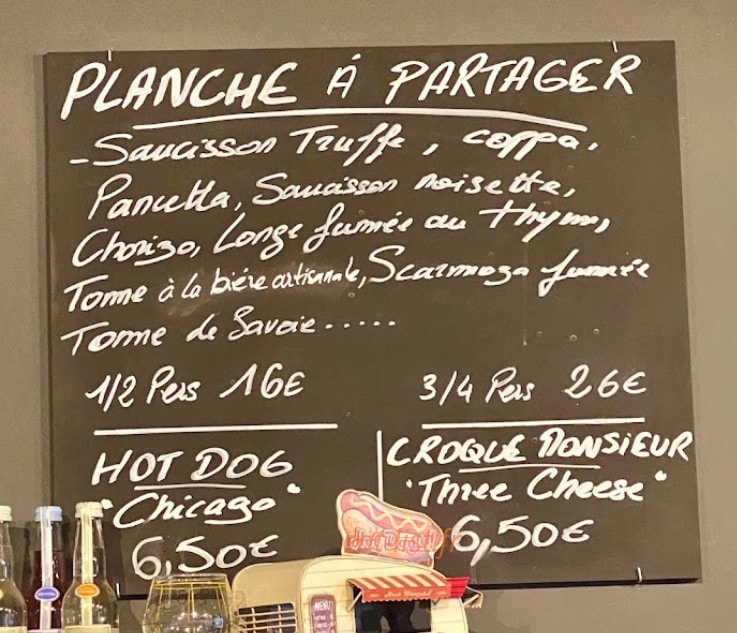 PLANCHE À PARTAGER
- Saucisson Truffe, coppa,
Pancetta, Saucisson noisette,
Chorizo, Longe fumée au thym,
Tomme à la bière artisanale, Scarmoza fumée
Tomme de Savoie.....
1/2 Pers 16€
3/4 Pers 26€
HOT DOG
"Chicago"
6,50€
CROQUE MONSIEUR
"Three Cheese"
6,50€
MENU